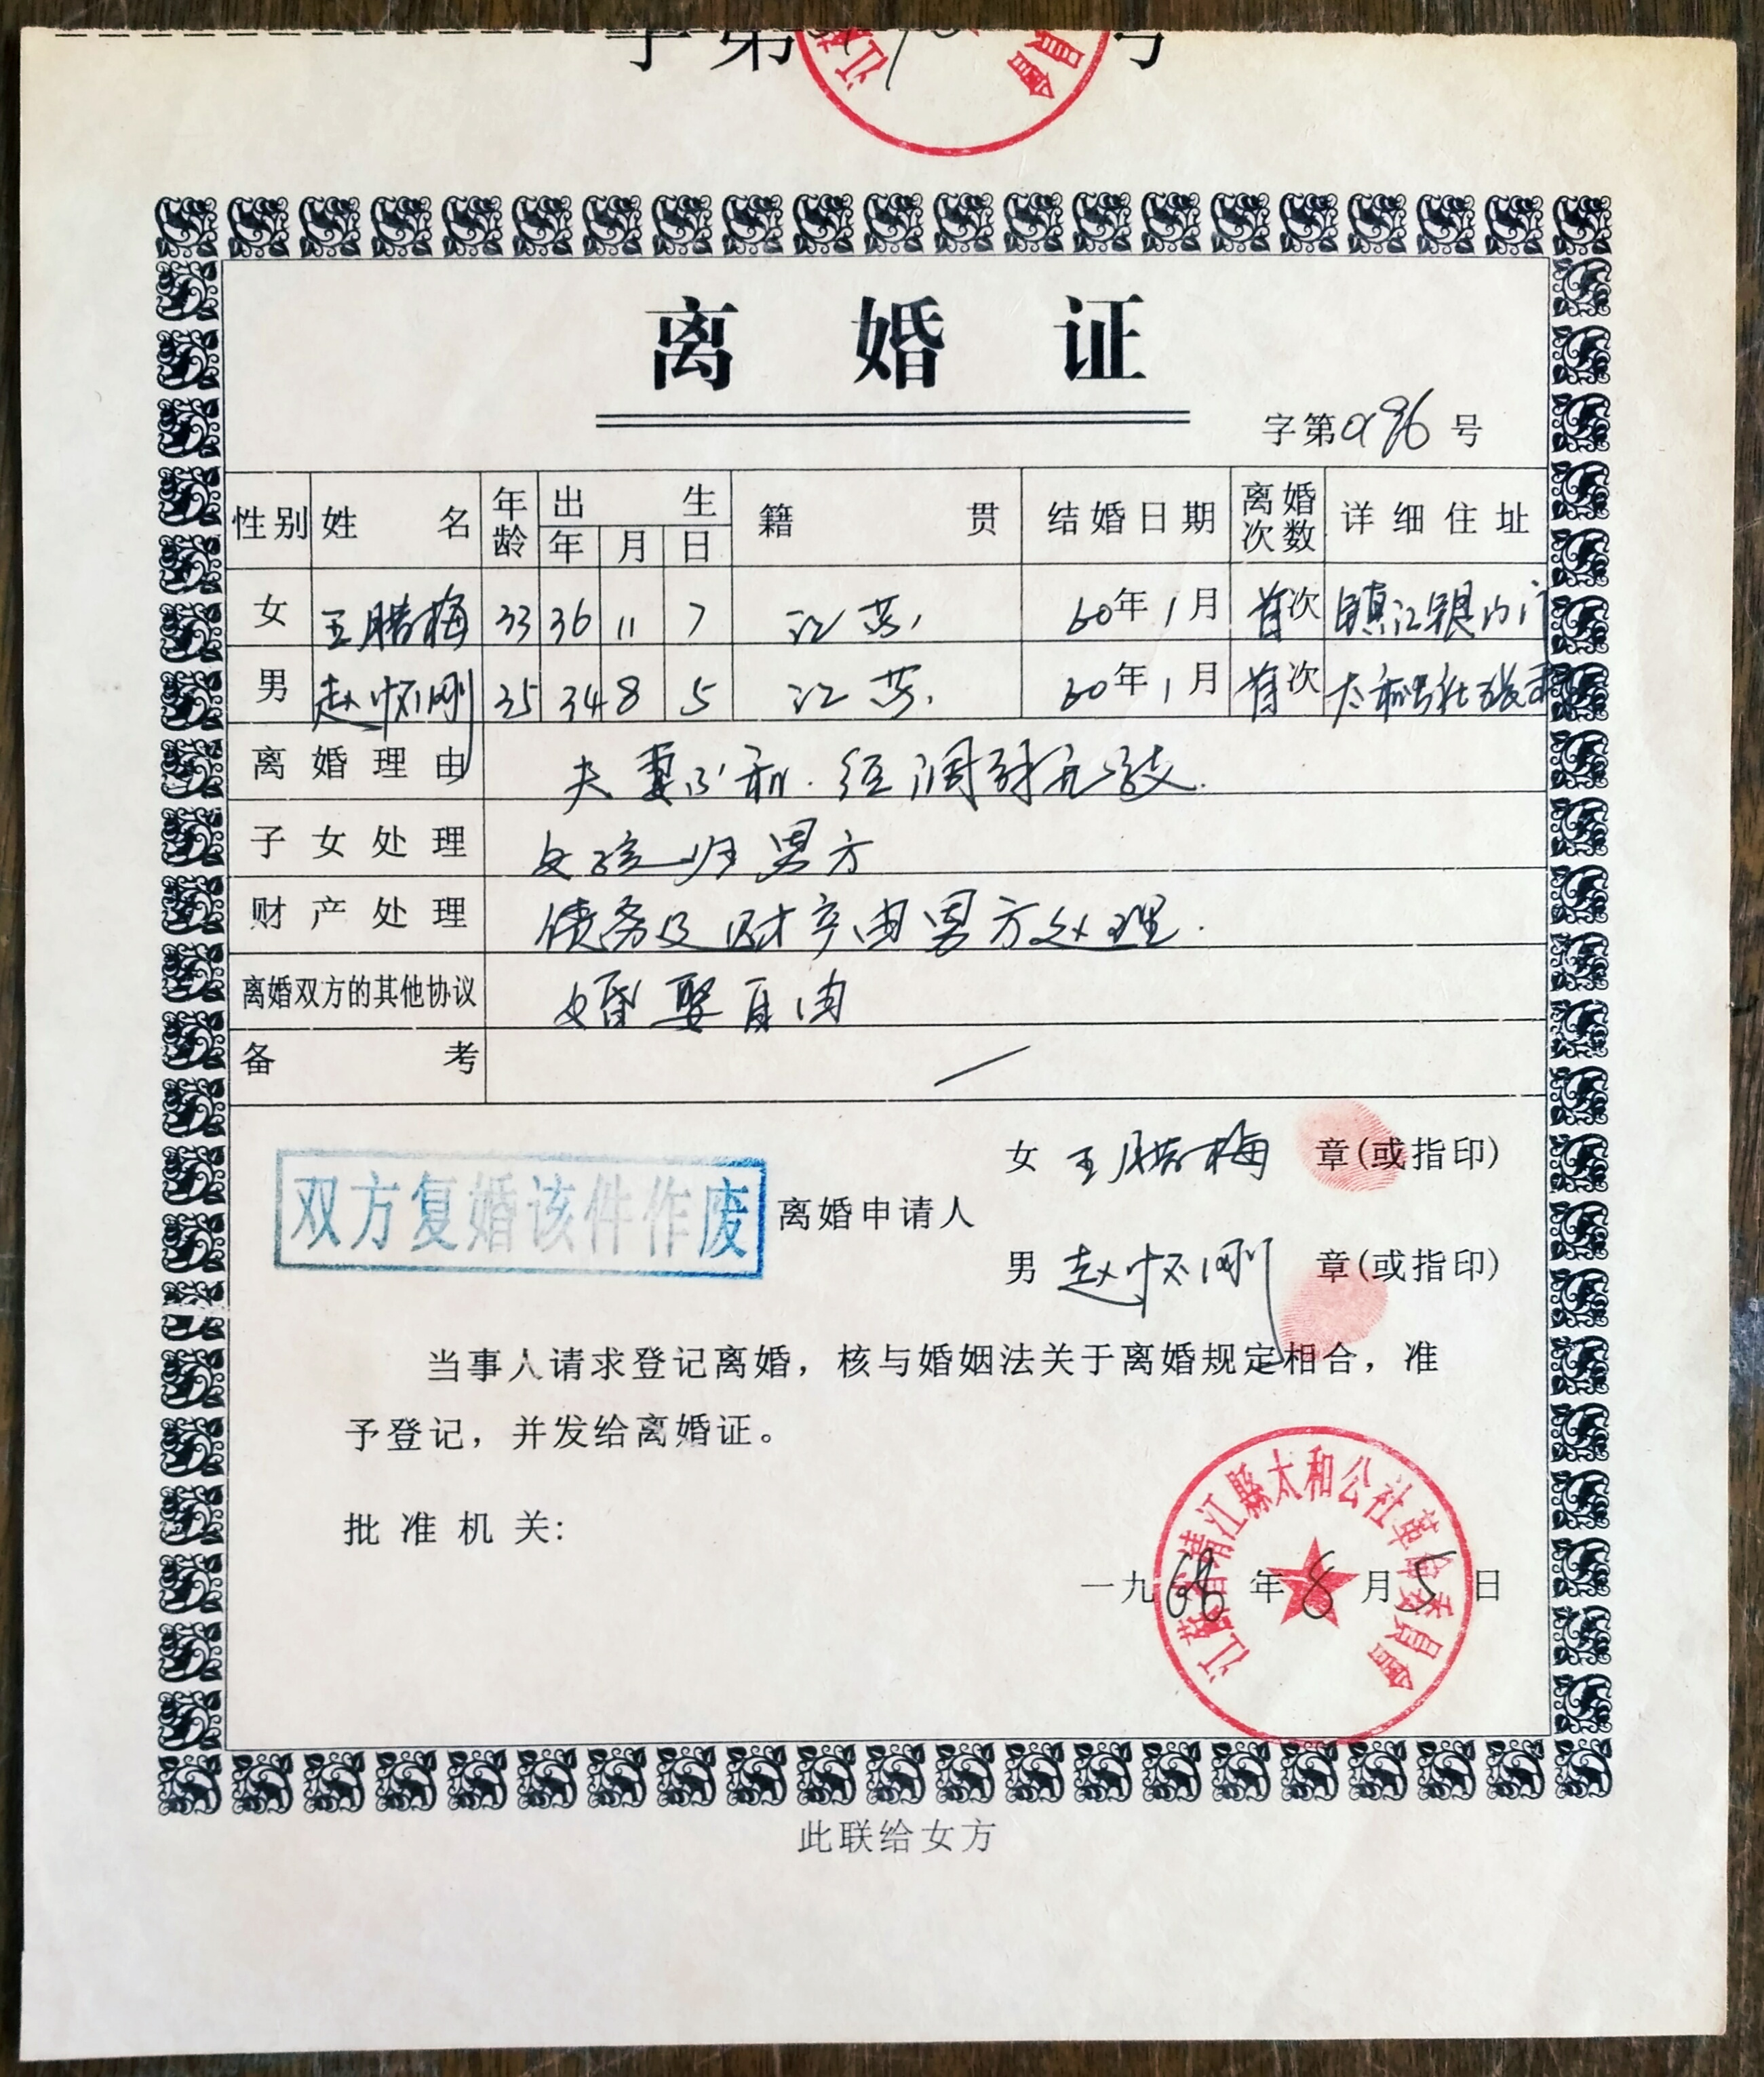 字第 号
离婚证
字第096号
性别 姓名 年龄 出生 年 月 日 籍贯 结婚日期 离婚次数 详细住址
女 王腊梅 33 36 11 7 江苏 60年1月 首次 镇江银山门
男 赵怀刚 35 34 8 5 江苏 60年1月 首次 太和公社
离婚理由 夫妻不和.经调解无效.
子女处理 女孩归男方
财产处理 债务及财产由男方处理.
离婚双方的其他协议 婚娶自由
备考 /
女 王腊梅 章(或指印)
双方复婚该件作废
离婚申请人
男 赵怀刚 章(或指印)
当事人请求登记离婚，核与婚姻法关于离婚规定相合，准
予登记，并发给离婚证。
批准机关:
江苏省清江縣太和公社革命委員會
一九68年8月5日
此联给女方